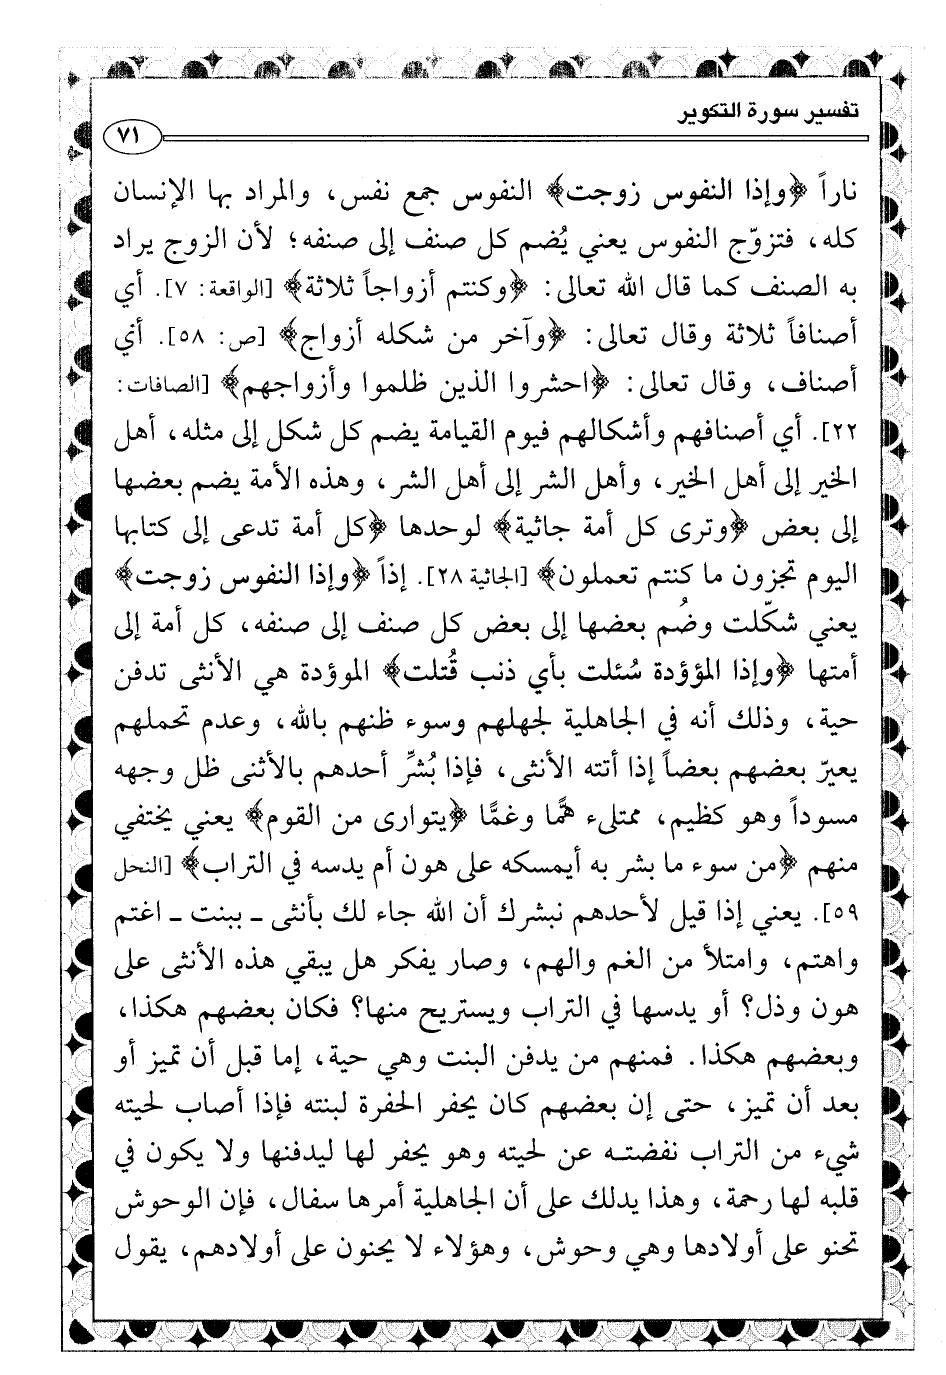 تفسير سورة التكوير
٧١
ناراً ﴿وإذا النفوس زوجت﴾ النفوس جمع نفس، والمراد بها الإنسان
كله، فتزوّج النفوس يعني يُضم كل صنف إلى صنفه؛ لأن الزوج يراد
به الصنف كما قال الله تعالى: ﴿وكنتم أزواجاً ثلاثة﴾ [الواقعة: ٧]. أي
أصنافاً ثلاثة وقال تعالى: ﴿وآخر من شكله أزواج﴾ [ص: ٥٨]. أي
أصناف، وقال تعالى: ﴿احشروا الذين ظلموا وأزواجهم﴾ [الصافات:
٢٢]. أي أصنافهم وأشكالهم فيوم القيامة يضم كل شكل إلى مثله، أهل
الخير إلى أهل الخير، وأهل الشر إلى أهل الشر، وهذه الأمة يضم بعضها
إلى بعض ﴿وترى كل أمة جاثية﴾ لوحدها ﴿كل أمة تدعى إلى كتابها
اليوم تجزون ما كنتم تعملون﴾ [الجاثية ٢٨]. إذاً ﴿وإذا النفوس زوجت﴾
يعني شكّلت وضُم بعضها إلى بعض كل صنف إلى صنفه، كل أمة إلى
أمتها ﴿وإذا المؤودة سُئلت بأي ذنب قُتلت﴾ الموؤدة هي الأنثى تدفن
حية، وذلك أنه في الجاهلية لجهلهم وسوء ظنهم بالله، وعدم تحملهم
يعيرّ بعضهم بعضاً إذا أتته الأنثى، فإذا بُشرِّ أحدهم بالأثنى ظل وجهه
مسوداً وهو كظيم، ممتلىء همًّا وغمًّا ﴿يتوارى من القوم﴾ يعني يختفي
منهم ﴿من سوء ما بشر به أيمسكه على هون أم يدسه في التراب﴾ [النحل
٥٩]. يعني إذا قيل لأحدهم نبشرك أن الله جاء لك بأنثى ـ ببنت ـ اغتم
واهتم، وامتلأ من الغم والهم، وصار يفكر هل يبقي هذه الأنثى على
هون وذل؟ أو يدسها في التراب ويستريح منها؟ فكان بعضهم هكذا،
وبعضهم هكذا. فمنهم من يدفن البنت وهي حية، إما قبل أن تميز أو
بعد أن تميز، حتى إن بعضهم كان يحفر الحفرة لبنته فإذا أصاب لحيته
شيء من التراب نفضته عن لحيته وهو يحفر لها ليدفنها ولا يكون في
قلبه لها رحمة، وهذا يدلك على أن الجاهلية أمرها سفال، فإن الوحوش
تحنو على أولادها وهي وحوش، وهؤلاء لا يحنون على أولادهم، يقول